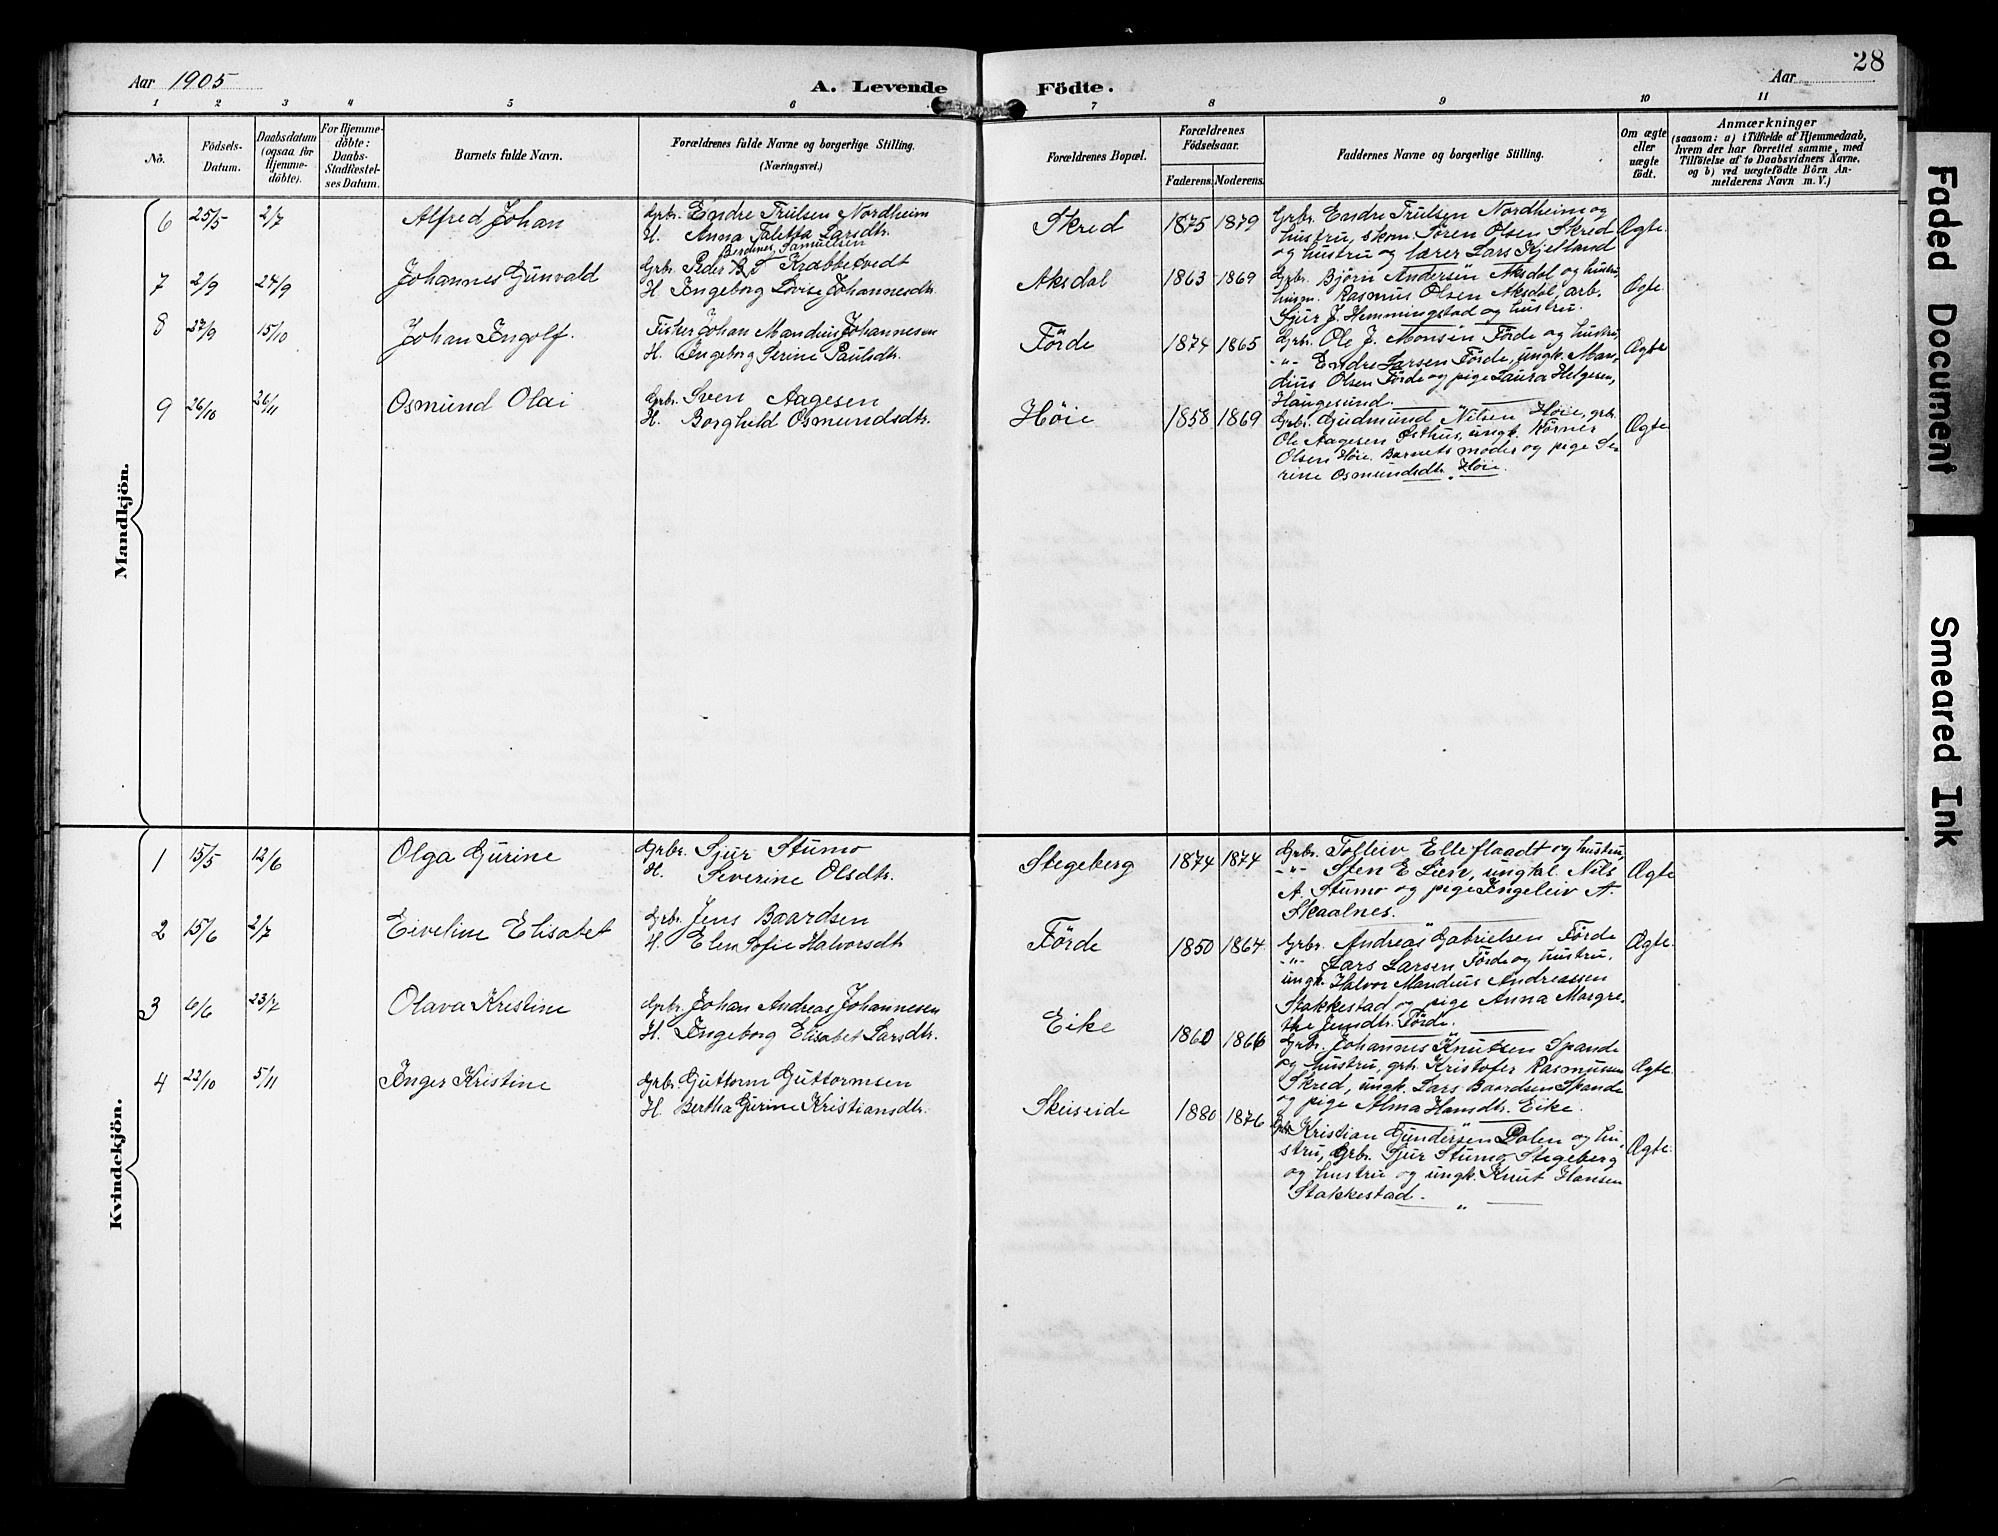 Aar 1905
A. Levende Födte.
Aar
28
1 2 3 4 5 6 7 8 9 10 11
No.
Födsels-
Datum.
Daabsdatum
(ogsaa for
Hjemme-
döbte).
For Hjemme-
döbte:
Daabs-
Stadfæstel-
ses Datum.
Barnets fulde Navn.
Forældrenes fulde Navne og borgerlige Stilling.
(Næringsvei.)
Forældrenes Bopæl.
Forældrenes
Födselsaar.
Faderens. Moderens.
Faddernes Navne og borgerlige Stilling.
Om ægte
eller
uægte
födt.
Anmærkninger
(saasom: a) i Tilfælde af Hjemmedaab,
hvem der har forrettet samme, med
Tilföielse af to Daabsvidners Navne,
og b) ved uægtefödte Börn An-
melderens Navn m. V.)
Mandkjön.
6 25/5 2/7 Alfred Johan
Grbr. Endre Trulsen Nordheim
H. Anna Taletta Larsdtr.
Skred 1875 1879
Grbr. Endre Trulsen Nordheim og
hustru, skom. Sören Olsen Skred
og hustru og lærer Lars Kjetland
Ægte.
7 2/9 24/9 Johannes Gunvald
Samuelsen
Grbr. Peder Krabbetvedt
H. Ingeborg Lovise Johannesdtr.
Aksdal 1863 1869
Grbr. Björn Andersen Aksdal og hustru,
husm. Rasmus Olsen Aksdal, arb.
Sjur J. Hemmingstad og hustru.
Ægte
8 27/9 15/10 Johan Ingolf.
Fisker Johan Mandius Johannesen
H. Ingeborg Serine Paulsdtr.
Förde 1874 1865
Grbr. Ole J. Monsen Förde og hustru,
-"- Endre Larsen Förde, ungk. Man-
dius Olsen Förde og pige Laura Helgesen,
Haugesund.
Ægte
9 26/10 26/11 Osmund Olai
Grbr. Sven Aagesen
H. Borghild Osmundsdtr.
Höie 1858 1869
Grbr. Gudmund Nilsen Höie, grb.
Ole Aagesen Østhus, ungk. Körner
Olsen Höie. Barnets moder og pige Se-
rine Osmundsdtr. Höie.
Ægte
Kvindekjön.
1 15/5 12/6 Olga Gurine
Grbr. Sjur Stumo
H. Severine Olsdtr.
Stegeberg 1874 1874
Grbr. Tolleiv Elleflaadt og hustru,
-"- Sten E Lien, ungkal. Nils
A. Stumo og pige Ingeleiv A.
Skaalnes.
Ægte
2 15/6 2/7 Eiveline Elisabet
Grbr. Jens Baardsen
H. Elen Sofie Halvorsdtr.
Förde 1850 1864
Grbr. Andreas Gabrielsen Förde
-"- Lars Larsen Förde og hustru,
ungk. Halvor Mandius Andreassen
Stakkestad og pige Anna Margre-
the Jensdtr. Förde.
Ægte.
3 6/6 23/7 Olava Kristine
Grbr. Johan Andreas Johannesen
H. Ingeborg Elisabet Larsdtr.
Eike 1860 1866
Grbr. Johannes Knutsen Spande
og hustru, grb. Kristofer Rasmussen
Skred, ungk. Lars Baardsen Spande
og pige Alma Hansdtr. Eike.
Ægte.
4 22/10 5/11 Inger Kristine
Grbr. Guttorm Guttormsen
H. Bertha Gurine Kristiansdtr.
Skeiseide 1880 1876
Grbr. Kristian Gundersen Dalen og hu-
stru, Grbr. Sjur Stumo Stegeberg
og hustru og ungk. Knut Hansen
Stakkestad.
Ægte.
Faded Document
Smeared Ink